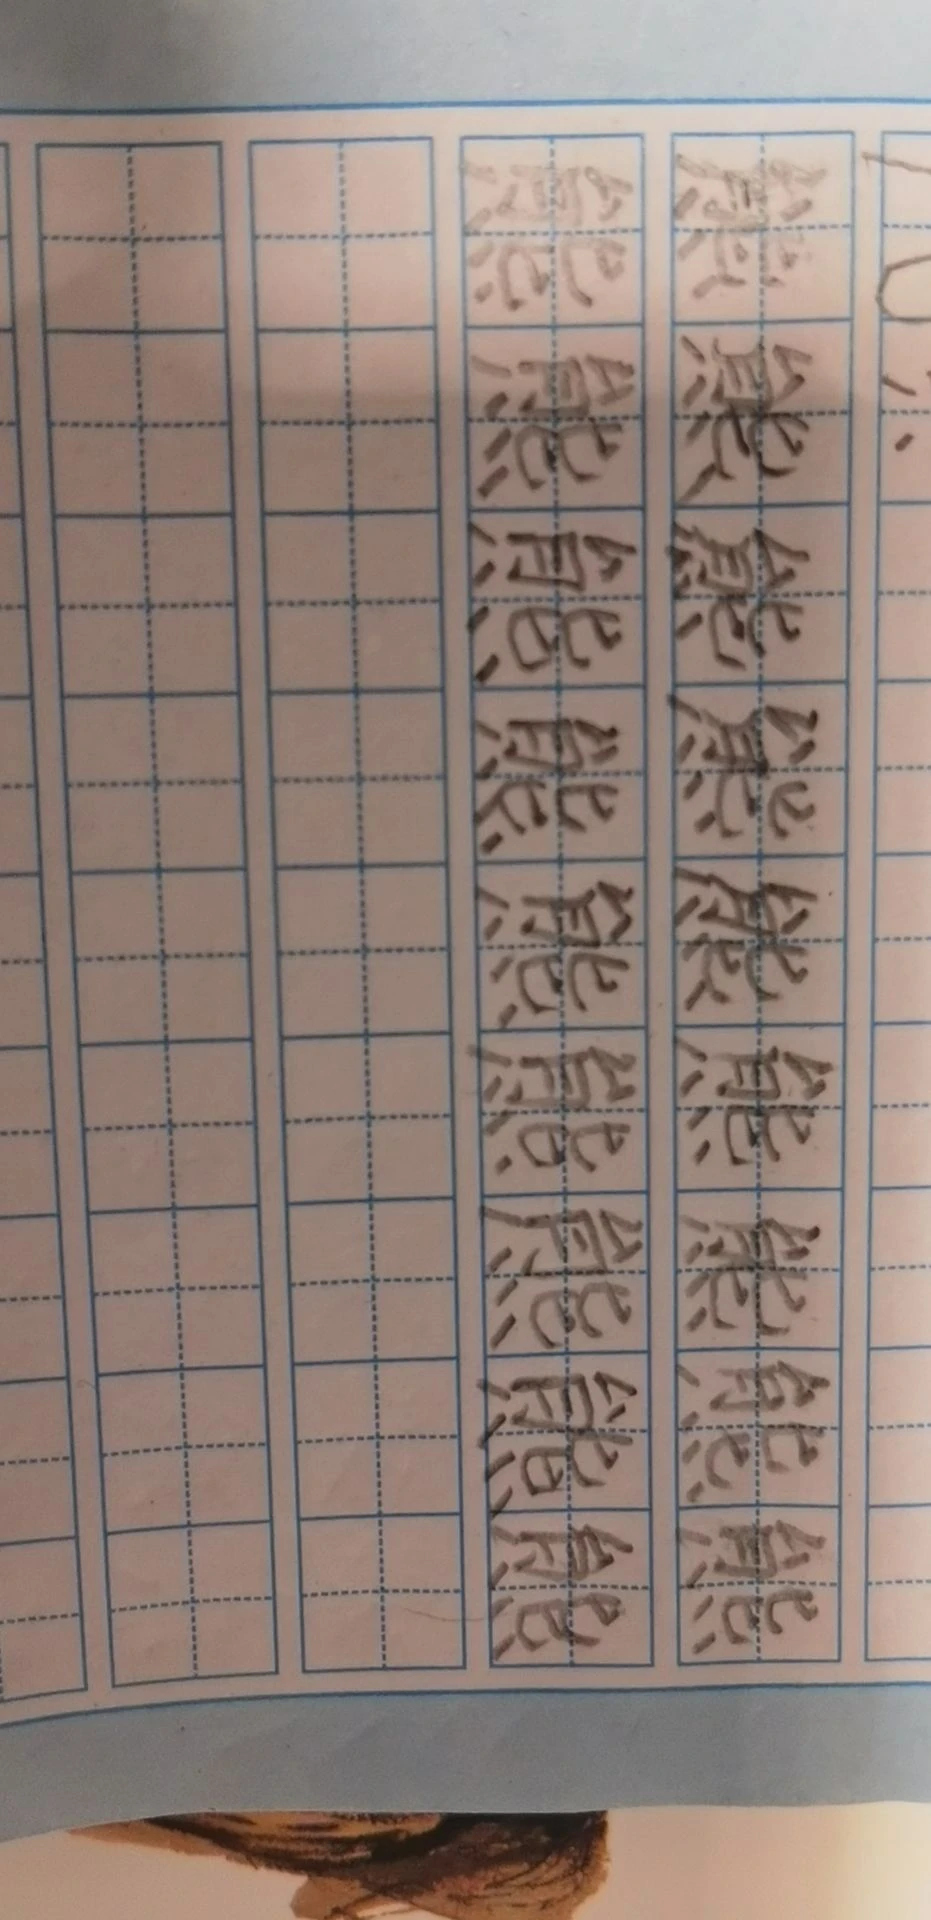 熊熊熊熊熊熊熊熊熊
熊熊熊熊熊熊熊熊熊